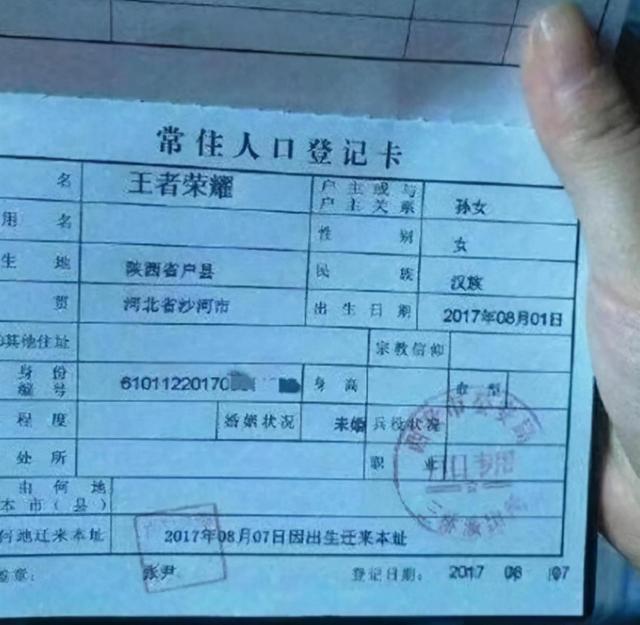 常住人口登记卡
名 王者荣耀 户主或与户主关系 孙女
用名 性别 女
生地 陕西省户县 民族 汉族
贯 河北省沙河市 出生日期 2017年08月01日
其他住址 宗教信仰
身份编号 61011220170 身高 血型
程度 婚姻状况 未婚 兵役状况
处所 职业
由何地
本市(县)
何地迁来本址 2017年08月07日因出生迁来本址
签章: 张尹 登记日期: 2017 08 07
户口专用